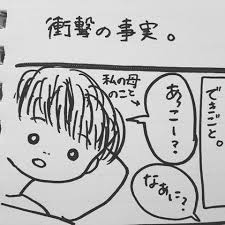 衝撃の事実。
できごと。
あっこー!?
私の母
のこと
なぁに?